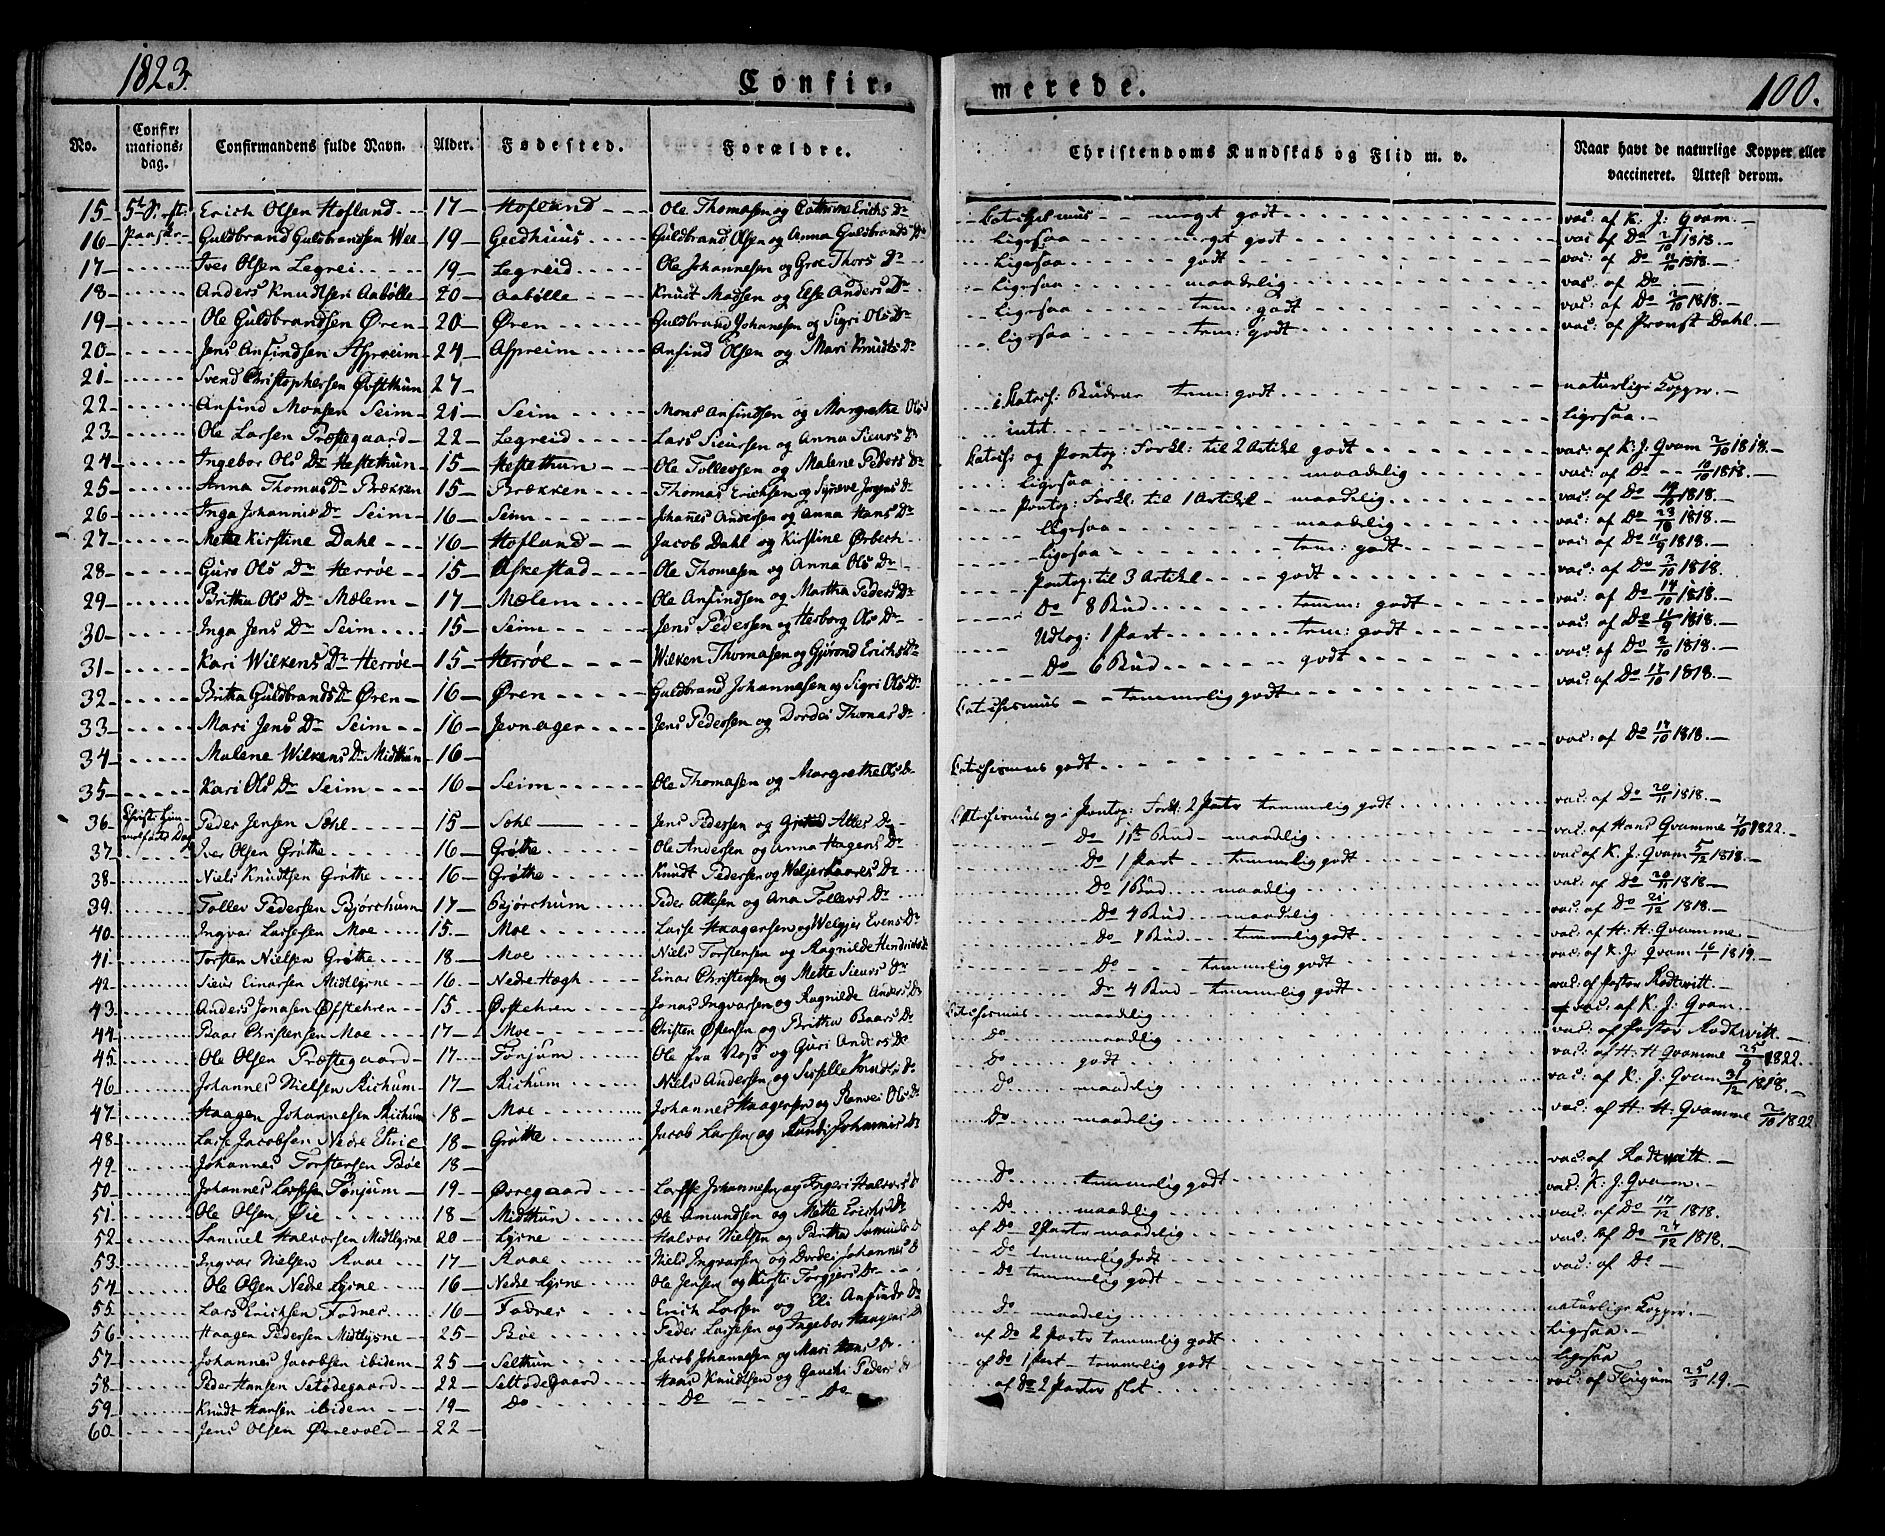 1823.
Confir-
merede.
100.
No.
Confir-
mations-
dag.
Confirmandens fulde Navn.
Alder.
Fødested.
Forældre.
Christendoms Kundskab og Flid m. v.
Naar havt de naturlige Kopper eller
vaccineret. Attest derom.
15 Erich Olsen Hofland 17 Hofland Ole Thomasen og Cathrine Erichs Dr meget godt vac. af K. J. Qvam.
16 Guldbrand Guldbrandsen 19 Guldbrand Olsen og Anna Guldbrands Dr Ligesaa meget godt vac. af Do 2/10 1818.
17 Iver Olsen Legrei 19 Legreid Ole Johannesen og Groe Thors Dr Ligesaa godt vac. af Do 11/10 1818.
18 Anders Knudtsen Aabølle 20 Aabølle Knudt Madsen og Else Anders Dr Ligesaa maadelig vac. af Do
19 Ole Guldbrandsen Øren 20 Øren Guldbrand Johanesen og Sigri Ols Dr Ligesaa tem: godt vac: af Do 2/10 1818.
20 Jens Anfindsen Aspreim 24 Aspreim Anfind Olsen og Mari Knudts Dr ligesaa tem: godt vac: af Provst Dahl.
21 Svend Christophersen 27
22 Anfind Monsen Seim 21 Seim Mons Anfindsen og Margrethe Ols tem: godt naturlige Kopper.
23 Ole Larsen Præstegaard 22 Legreid Lars Sieursen og Anna Sieurs Dr intet ligesaa.
24 Ingebor Ols Dr Hestethun 15 Hestethun Ole Tollevsen og Malene Peders Dr og Pontop: Forkl: til 2 Artikl godt vac: af K. J. Qvam 2/10 1818.
25 Anna Thomas Dr Brækken 15 Brækken Thomas Erichsen og Synneve Jørgens Dr Ligesaa maadelig vac: af Do 10/10 1818.
26 Inga Johannis Dr Seim 16 Seim Johanes Andersen og Anna Hans Dr Pontop: Forkl. til 1 Artikl maadelig vac: af Do 1818.
27 Mette Kirstine Dahl 16 Hofland Jacob Dahl og Kirstine Ørbech Ligesaa maadelig vac: af Do 23/10 1818.
28 Guro Ols Dr Herrøe 15 Askestad Ole Thomasen og Anna Ols Dr ligesaa tem: godt vac: af Do 11/9 1818.
29 Britha Ols Dr Mælem 17 Mælem Ole Anfindsen og Martha Peders Dr Pontop: til 3 Artikl godt vac: af Do 2/10 1818.
30 Inga Jens Dr Seim 15 Seim Jens Pedersen og Herborg Ols Dr Do 8 Bud temm: godt vac: af Do 17/10 1818.
31 Kari Wilkens Dr Herrøe 15 Herrøe Wilken Thomasen og Gjørond Erichs Dr Udtog: 1 Part tem: godt vac: af Do 11/9 1818.
32 Britha Guldbrands Dr Øren 16 Øren Guldbrand Johannesen og Sigri Ols Dr Do 6 Bud godt vac: af Do 2/10 1818.
33 Mari Jens Dr Seim 16 Jevnager Jens Pedersen og Dordei Thomas Dr temmelig godt vac: af Do 17/10 1818.
34 Malene Wilkens Dr Midthun 16
35 Kari Ols Dr Seim 16 Seim Ole Thomasen og Margrethe Ols Dr godt vac: af Do 17/10 1818.
36 Peder Jensen Sohl 15 Sohl Jens Pedersen og Attes Dr og Pontop: Forkl: 2 Parter temmelig godt vac: af Do 20/11 1818.
37 Iver Olsen Grøthe 16 Grøthe Ole Andersen og Anna Hagens Dr Do 1ste Bud maadlig vac: af Hans Qvamme 1822.
38 Niels Knudtsen Grøthe 16 Grøthe Knudt Pedersen og Dr Do 1 Part temmelig godt vac: af K. J. Qvam 5/12 1818.
39 Tollev Pedersen Bjørchum 17 Bjørchum Peder Attesen og Ana Tollevs Dr Do 1 Bud maadlig vac: af Do 20/11 1818
40 Ingvar Lassesen Moe 15 Moe Lasse Haagensen og Evens Dr Do 4 Bud maadelig vac: af Do 21/12 1818.
41 Torsten Nielsen Grøthe 18 Moe Niels Torstensen og Ragnilde Do Bud temmelig godt vac: af H. H. Qvamme.
42 Sieur Einarsen Midtlysne 16 Nedre Hægh Einar Christensen og Mette Sieurs Dr Do temmelig godt vac: af K. J. Qvam 16/1 1819.
43 Anders Jonasen Øfstehren 15 Øvstehren Jonas Ingvarsen og Ragnilde Anders Dr Do 4 Bud temmelig godt vac: af Pastor
44 Baar Christensen Moe 17 Moe Cristen Østensen og Britha Baars Dr maadlig vac: af K. J. Qvam.
45 Ole Olsen Præstegaard 17 Tønjum Ole fra Voss og Guri Anders Dr Do maadlig vac: af Pastor
46 Johannes Nielsen Richum 17 Richum Niels Andersen og Siselle Knudts Dr Do godt vac: af H. H. Qvamme 25/9 1822.
47 Haagen Johannesen Richum 18 Moe Johannes Haagensen og Ranvei Ols Dr Do maadelig vac: af K. J. Qvam 31/12 1818.
48 Lasse Jacobsen Nedre 18 Grøthe Jacob Larsen og Johannis Dr Do maadelig vac: af H. H. Qvamme 2/10 1822
49 Johannes Torstensen Bøe 18
50 Johannes Lassesen Tønjum 19 Øvregaard Lasse Johannesen og Ingeri Halvors Dr Do temmelig godt vac: af
51 Ole Olsen Øie 18 Midthun Ole Amundsen og Mette Erichs Dr Do maadlig vac: K. J. Qvam.
52 Samuel Halvorsen Midtlysne 20 Lysne Halvor Nielsen og Britha Samuels Dr af Do 2 Parter maadelig vac: af Do 17/12 1818.
53 Ingvar Nielsen Raae 17 Raae Niels Ingvarsen og Dordei Johannes D Do temmelig godt vac: af Do 24/12 1818.
54 Ole Olsen Nedre Lysne 16 Nedre Lysne Ole Jensen og Kirsti Torgjers Dr Do temmelig godt vac: af Do
55 Lars Erichsen Fodnes 16 Fodnes Erich Larsen og Eli Anfinds Dr Do maadelig naturlige Kopper.
56 Haagen Pedersen Midtlysne 25 Bøe Peder Lassesen og Ingebor Haagens D af Do 2 Parter temmelig godt Ligesaa.
57 Johannes Jacobsen ibidem 25 Selthun Jacob Johannesen og Mari Hans Dr af Do 1 Part temmelig godt ligesaa
58 Peder Hansen Seltødegaard 22 Seltødegaard Hans Knudtsen og Peders Dr af Do 2 Parter slet vac: af 19.
59 Knudt Hansen ibidem 19 Do Do Do
60 Jens Olsen Ørrevold 22